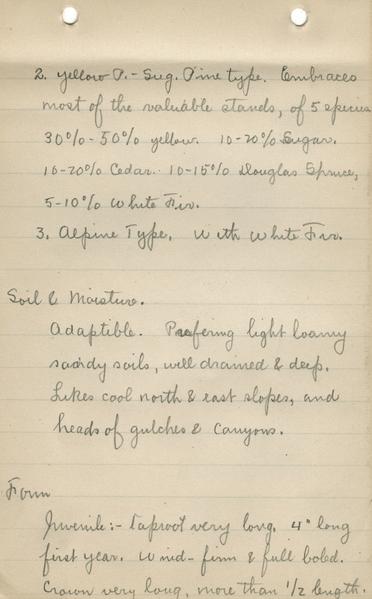 2. Yellow P. - Sug. Pine type. Embraces
most of the valuable stands, of 5 species
30% - 50% yellow. 10-20% Sugar.
10-20% Cedar. 10-15% Douglas Spruce,
5-10% White Fir.
3. Alpine Type. With White Fir.
Soil & Moisture.
Adaptible. Prefering light loamy
saandy soils, well drained & deep.
Likes cool north & east slopes, and
heads of gulches & canyons.
Form
Juvenile:- Taproot very long. 4" long
first year. Wind-firm & full boled.
Crown very long, more than 1/2 length.